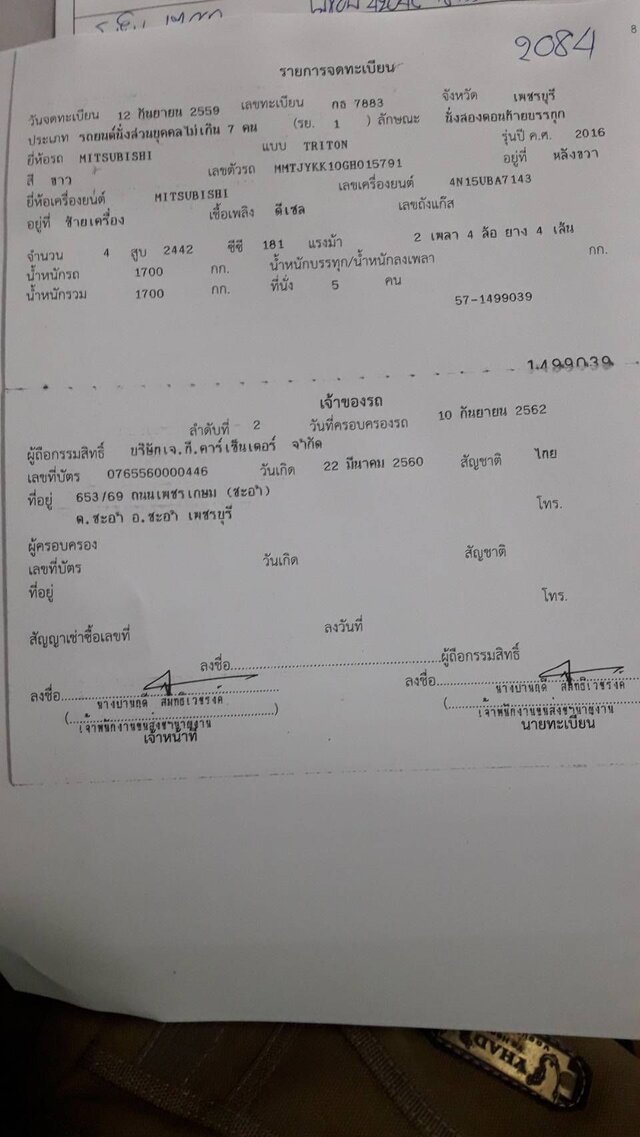 8
2084
รายการจดทะเบียน
วันจดทะเบียน 12 กันยายน 2559 เลขทะเบียน กธ 7883 จังหวัด เพชรบุรี
ประเภท รถยนต์นั่งส่วนบุคคลไม่เกิน 7 คน (รย. 1 ) ลักษณะ นั่งสองตอนท้ายบรรทุก
ยี่ห้อรถ MITSUBISHI แบบ TRITON รุ่นปี ค.ศ. 2016
สี ขาว เลขตัวรถ MMTJYKK10GH015791 อยู่ที่ หลังขวา
ยี่ห้อเครื่องยนต์ MITSUBISHI เลขเครื่องยนต์ 4N15UBA7143
อยู่ที่ ซ้ายเครื่อง เชื้อเพลิง ดีเซล เลขถังแก๊ส
จำนวน 4 สูบ 2442 ซีซี 181 แรงม้า 2 เพลา 4 ล้อ ยาง 4 เส้น
น้ำหนักรถ 1700 กก. น้ำหนักบรรทุก/น้ำหนักลงเพลา กก.
น้ำหนักรวม 1700 กก. ที่นั่ง 5 คน
57-1499039
1499039
เจ้าของรถ
ลำดับที่ 2 วันที่ครอบครองรถ 10 กันยายน 2562
ผู้ถือกรรมสิทธิ์ บริษัทเจ.ที.คาร์เซ็นเตอร์ จำกัด
เลขที่บัตร 0765560000446 วันเกิด 22 มีนาคม 2560 สัญชาติ ไทย
ที่อยู่ 653/69 ถนนเพชรเกษม (ชะอำ)
ต.ชะอำ อ.ชะอำ เพชรบุรี โทร.
ผู้ครอบครอง
เลขที่บัตร วันเกิด สัญชาติ
ที่อยู่
โทร.
สัญญาเช่าซื้อเลขที่ ลงวันที่
ลงชื่อ ผู้ถือกรรมสิทธิ์
ลงชื่อ ลงชื่อ
เจ้าพนักงานขนส่งชำนาญงาน เจ้าพนักงานขนส่งชำนาญงาน
เจ้าหน้าที่ นายทะเบียน